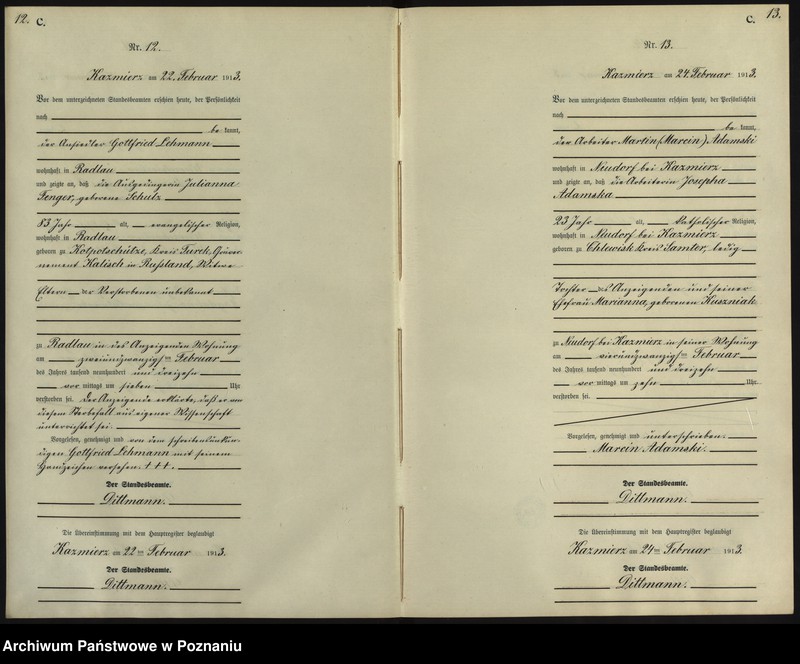 12. C.
Nr. 12.
Kazmierz am 22. Februar 1913.
Vor dem unterzeichneten Standesbeamten erschien heute, der Persönlichkeit
nach
be kannt,
der Ansiedler Gottfried Lehmann
wohnhaft in Radlau
und zeigte an, daß die Altgedingerin Julianna
Fenger, geborene Schulz
83 Jahr alt, evangelischer Religion,
wohnhaft in Radlau
geboren zu Kreis Turek, Gouver-
nement Kalisch in Rußland, Witwe
Eltern der Verstorbenen unbekannt
zu Radlau in des Anzeigenden Wohnung
am zweiundzwanzigsten Februar
des Jahres tausend neunhundert und dreizehn
vor mittags um sieben Uhr
verstorben sei. Der Anzeigende erklärte, daß er von
diesem Sterbefall aus eigener Wissenschaft
unterrichtet sei.
Vorgelesen, genehmigt und von dem schreibunkun-
digen Gottfried Lehmann mit seinem
Handzeichen versehen. + + +.
Der Standesbeamte.
Dittmann.
Die Übereinstimmung mit dem Hauptregister beglaubigt
Kazmierz am 22ten Februar 1913.
Der Standesbeamte.
Dittmann.
C. 13.
Nr. 13.
Kazmierz am 24. Februar 1913.
Vor dem unterzeichneten Standesbeamten erschien heute, der Persönlichkeit
nach
be kannt,
der Arbeiter Martin (Marcin) Adamski
wohnhaft in Neudorf bei Kazmierz
und zeigte an, daß die Arbeiterin Josepha
Adamska
23 Jahr alt, katholischer Religion,
wohnhaft in Neudorf bei Kazmierz
geboren zu Chlewisk Kreis Samter, ledig
Tochter des Anzeigenden und seiner
Ehefrau Marianna, geborenen Kuszniak
zu Neudorf bei Kazmierz in seiner Wohnung
am vierundzwanzigsten Februar
des Jahres tausend neunhundert und dreizehn
vor mittags um zehn Uhr
verstorben sei.
Vorgelesen, genehmigt und unterschrieben.
Marcin Adamski.
Der Standesbeamte.
Dittmann.
Die Übereinstimmung mit dem Hauptregister beglaubigt
Kazmierz am 24ten Februar 1913.
Der Standesbeamte.
Dittmann.
Archiwum Państwowe w Poznaniu